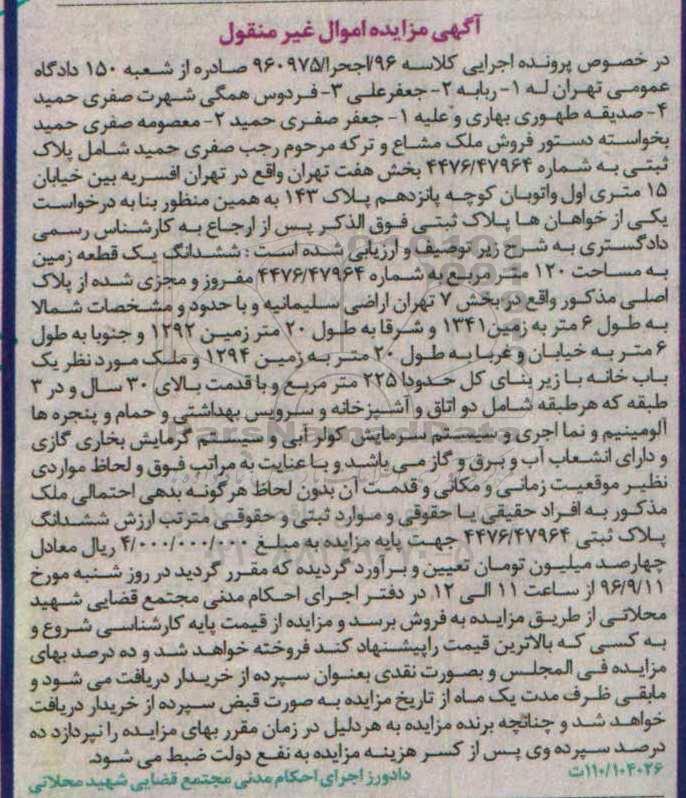 آگهی مزایده اموال غیر منقول
در خصوص پرونده اجرایی کلاسه ۹۶/اجحرا/۹۶۰۹۷۵ صادره از شعبه ۱۵۰ دادگاه
عمومی تهران له ۱- ربابه ۲- جعفرعلی ۳- فردوس همگی شهرت صفری حمید
۴- صدیقه طهوری بهاری و علیه ۱- جعفر صفری حمید ۲- معصومه صفری حمید
بخواسته دستور فروش ملک مشاع و ترکه مرحوم رجب صفری حمید شامل پلاک
ثبتی به شماره ۴۴۷۶/۴۷۹۶۴ بخش هفت تهران واقع در تهران افسریه بین خیابان
۱۵ متری اول واتوبان کوچه پانزدهم پلاک ۱۴۳ به همین منظور بنا به درخواست
یکی از خواهان ها پلاک ثبتی فوق الذکر پس از ارجاع به کارشناس رسمی
دادگستری به شرح زیر توصیف و ارزیابی شده است : ششدانگ یک قطعه زمین
به مساحت ۱۲۰ متر مربع به شماره ۴۴۷۶/۴۷۹۶۴ مفروز و مجزی شده از پلاک
اصلی مذکور واقع در بخش ۷ تهران اراضی سلیمانیه و با حدود و مشخصات شمالا
به طول ۶ متر به زمین ۱۳۴۱ و شرقا به طول ۲۰ متر زمین ۱۲۹۲ و جنوبا به طول
۶ متر به خیابان و غربا به طول ۲۰ متر به زمین ۱۲۹۴ و ملک مورد نظر یک
باب خانه با زیر بنای کل حدودا ۲۲۵ متر مربع و با قدمت بالای ۳۰ سال و در ۳
طبقه که هرطبقه شامل دو اتاق و آشپزخانه و سرویس بهداشتی و حمام و پنجره ها
آلومینیم و نما اجری و سیستم سرمایش کولر آبی و سیستم گرمایش بخاری گازی
و دارای انشعاب آب و برق و گاز می باشد و با عنایت به مراتب فوق و لحاظ مواردی
نظیر موقعیت زمانی و مکانی و قدمت آن بدون لحاظ هرگونه بدهی احتمالی ملک
مذکور به افراد حقیقی یا حقوقی و موارد ثبتی و حقوقی مترتب ارزش ششدانگ
پلاک ثبتی ۴۴۷۶/۴۷۹۶۴ جهت پایه مزایده به مبلغ ۴/۰۰۰/۰۰۰/۰۰۰ ریال معادل
چهارصد میلیون تومان تعیین و برآورد گردیده که مقرر گردید در روز شنبه مورخ
۹۶/۹/۱۱ از ساعت ۱۱ الی ۱۲ در دفتر اجرای احکام مدنی مجتمع قضایی شهید
محلاتی از طریق مزایده به فروش برسد و مزایده از قیمت پایه کارشناسی شروع و
به کسی که بالاترین قیمت راپیشنهاد کند فروخته خواهد شد و ده درصد بهای
مزایده فی المجلس و بصورت نقدی بعنوان سپرده از خریدار دریافت می شود و
مابقی ظرف مدت یک ماه از تاریخ مزایده به صورت قبض سپرده از خریدار دریافت
خواهد شد و چنانچه برنده مزایده به هردلیل در زمان مقرر بهای مزایده را نپردازد ده
درصد سپرده وی پس از کسر هزینه مزایده به نفع دولت ضبط می شود.
۱۱۰/۱۰۴۰۲۶ت دادورز اجرای احکام مدنی مجتمع قضایی شهید محلاتی
ParsNamadData